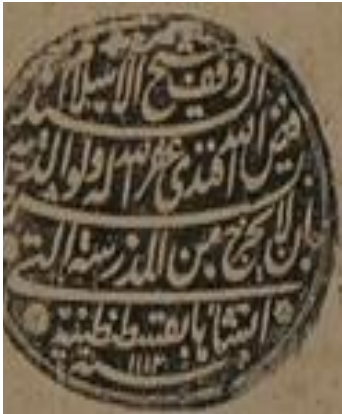 وقف شيخ الاسلام السيد
فيض الله افندى غفر الله له ولوالديه
ان لا يخرج من المدرسة التى
انشاها بقسطنطنية
سنة ١١١٣